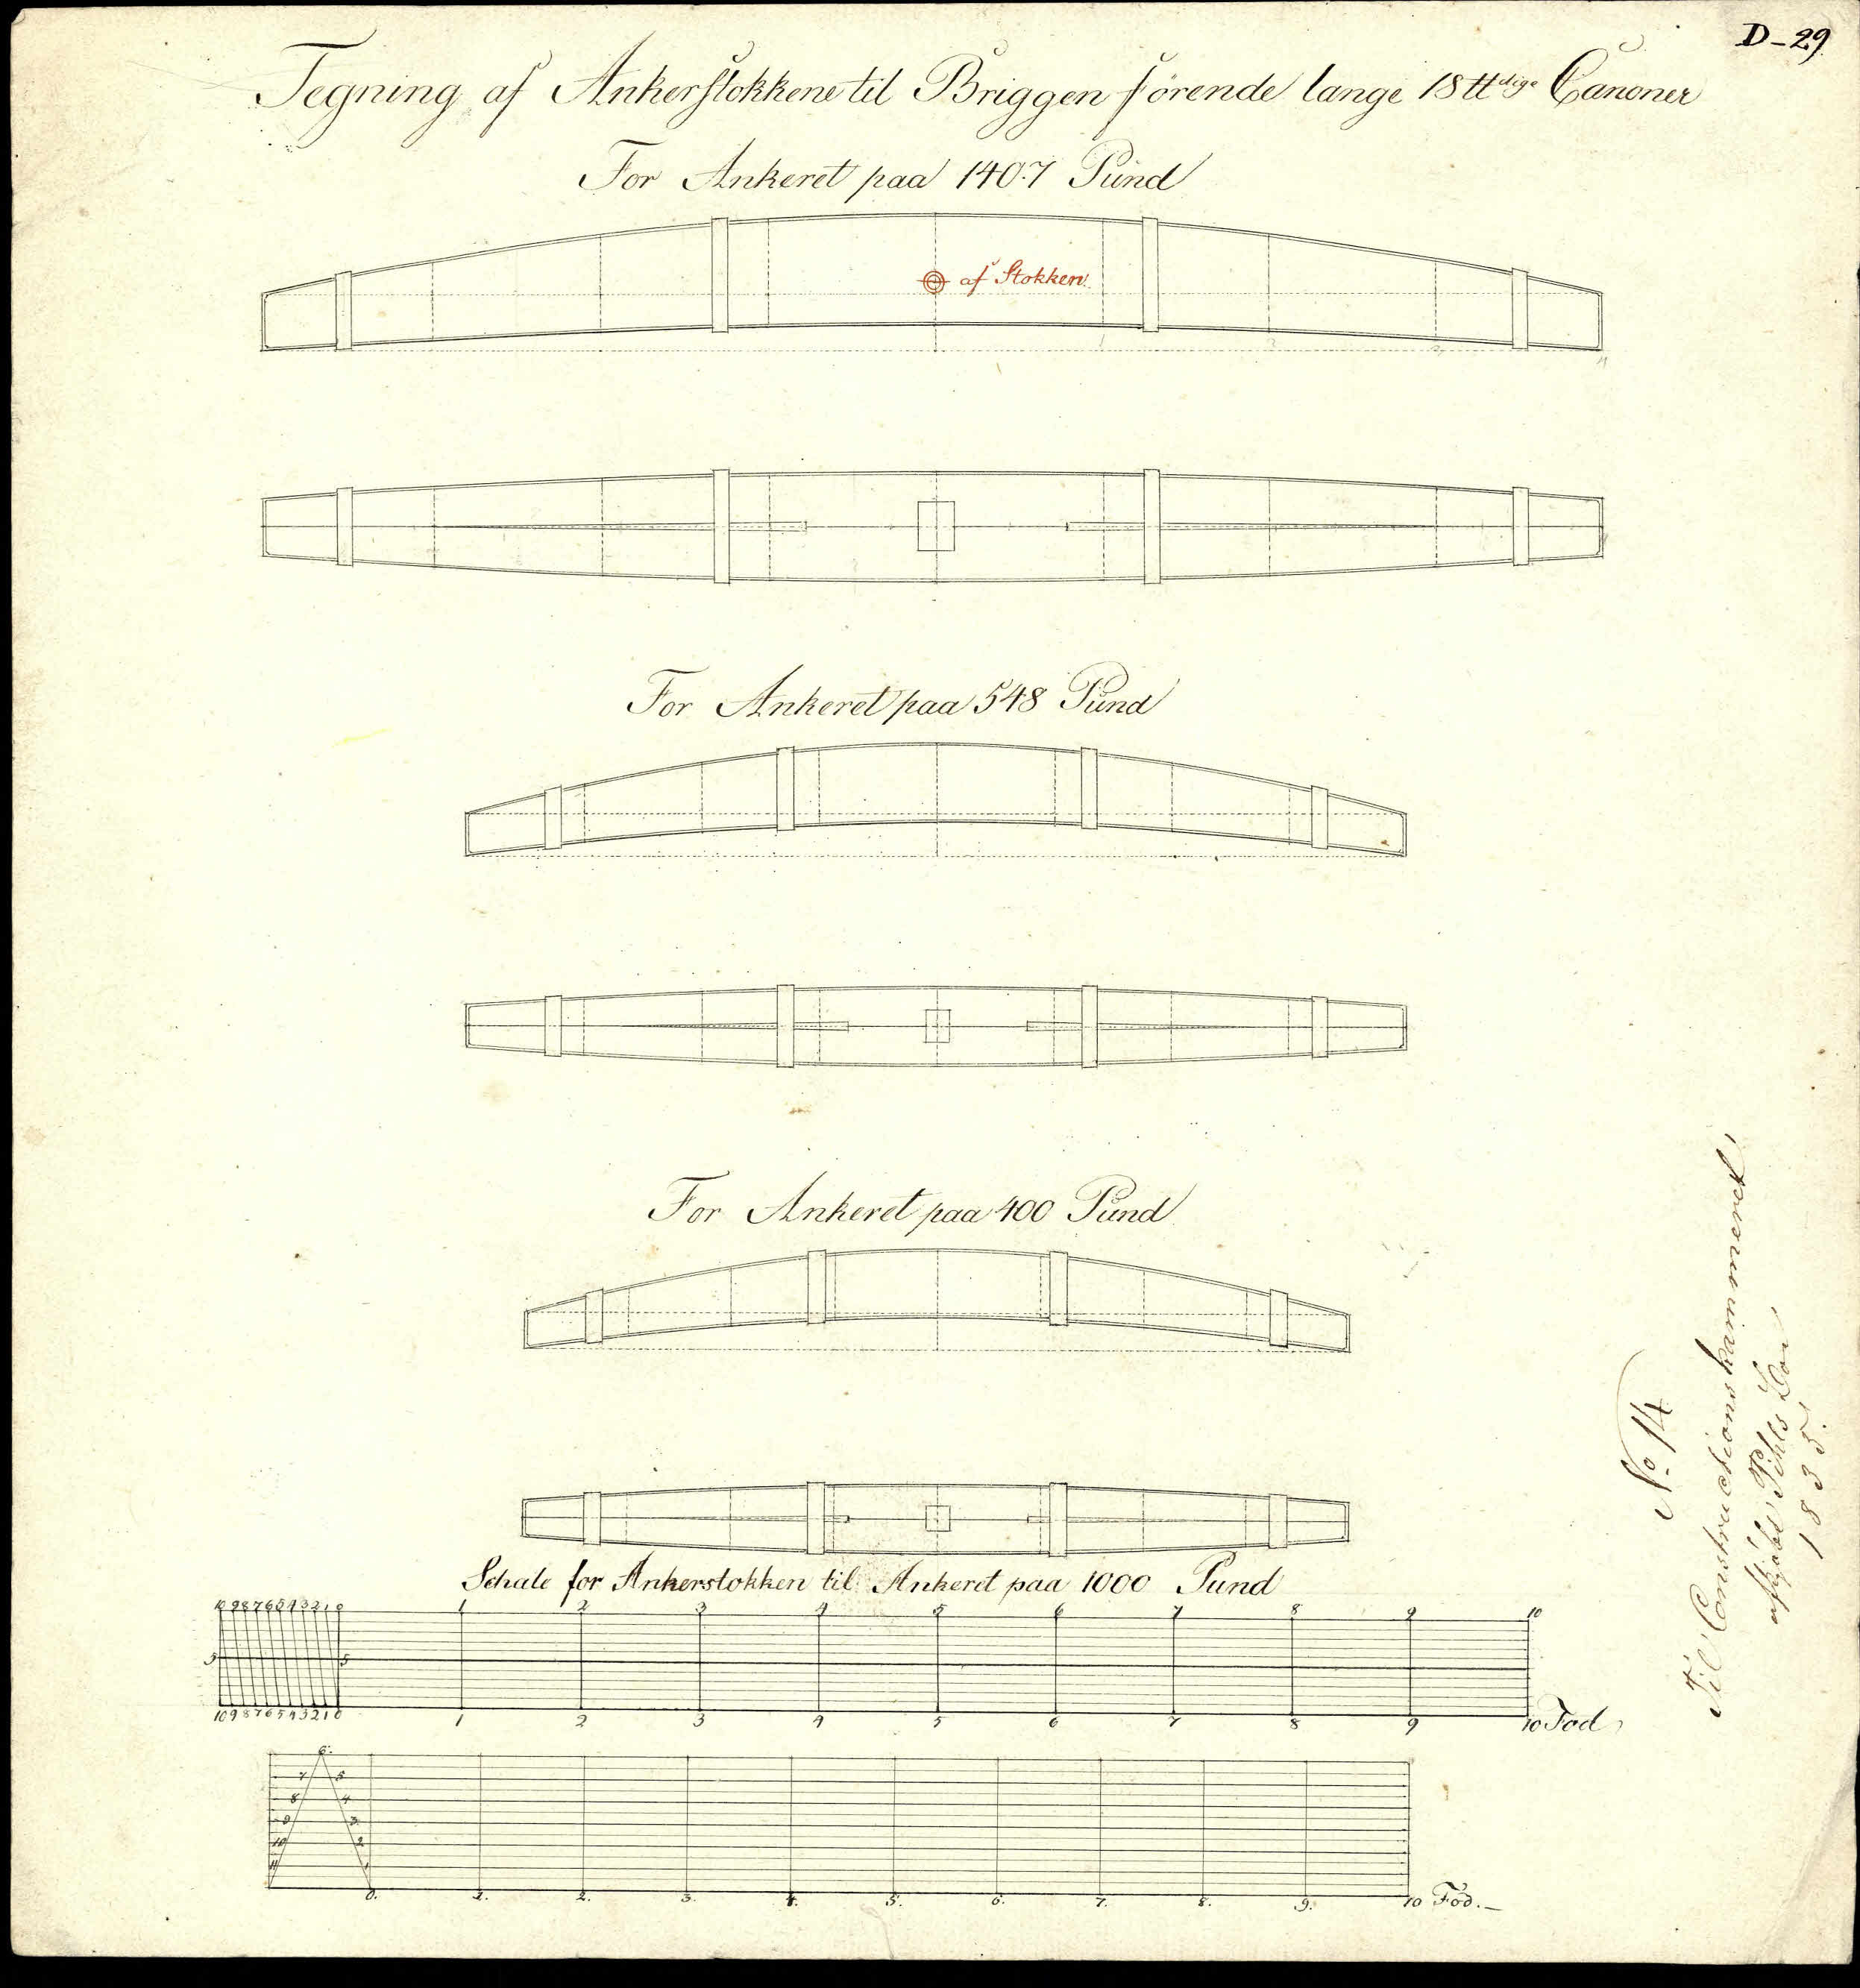 D-29.
Tegning af Ankerstokkene til Briggen förende lange 18 ttdige Canoner
For Ankeret paa 1407 Pund
af Stokken.
1 2 3 4
For Ankeret paa 548 Pund
For Ankeret paa 400 Pund
Schale for Ankerstokken til Ankeret paa 1000 Pund
10 9 8 7 6 5 4 3 2 1 0 1 2 3 4 5 6 7 8 9 10
5 5
10 9 8 7 6 5 4 3 2 1 0 1 2 3 4 5 6 7 8 9 10 Fod
6.
7 5
8 4
9 3
10 2
11 1
0. 1. 2. 3. 4. 5. 6. 7. 8. 9. 10 Fod.
No. 14
Til Constructionskammeret
Pihls
1835.